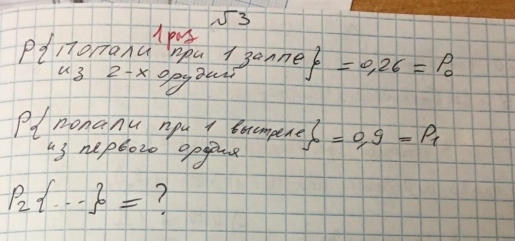 √3
1 раз
P{ попали при 1 залпе } = 0,26 = P₀
из 2-х орудий
P{ попали при 1 выстреле } = 0,9 = P₁
из первого орудия
P₂{...} = ?